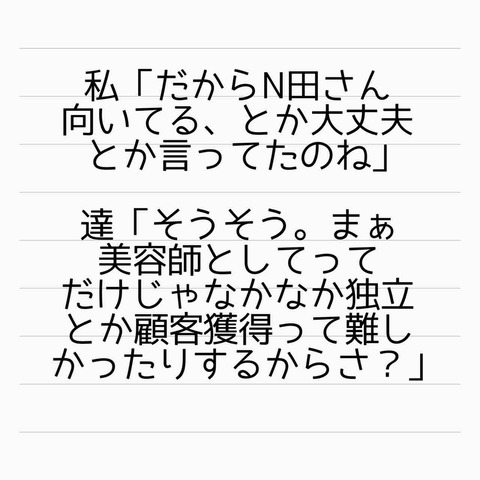 私「だからN田さん
向いてる、とか大丈夫
とか言ってたのね」
達「そうそう。まぁ
美容師としてって
だけじゃなかなか独立
とか顧客獲得って難し
かったりするからさ？」